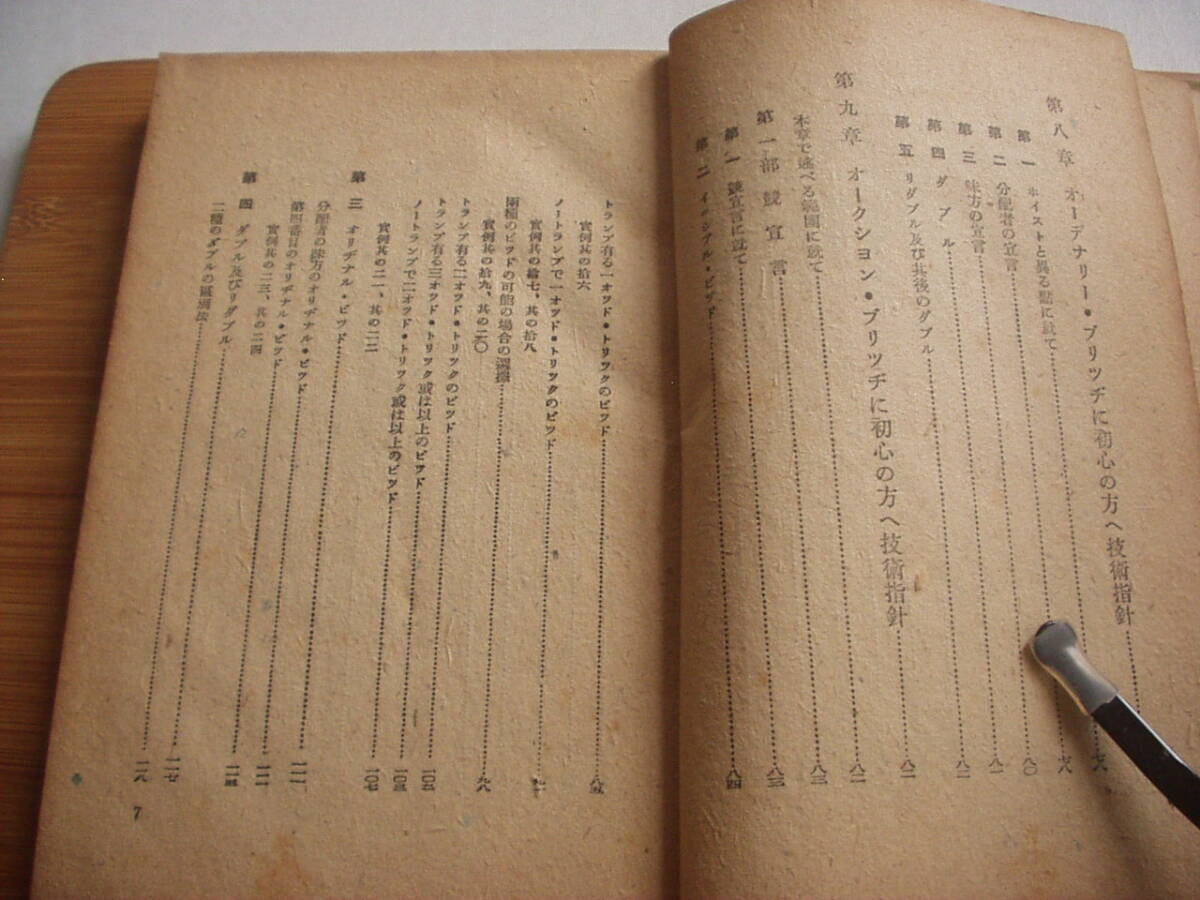 第八章 オーデナリー・ブリツチに初心の方へ技術指針
第一 ホイストと異る點に就て
第二 分配者の宣言
第三 味方の宣言
第四 ダブル
第五 リダブル及び其後のダブル
第九章 オークシヨン・ブリツチに初心の方へ技術指針
本章で述べる範圍に就て
第一部 競宣言
第一 競宣言に就て
第二 イニシアル・ビツド
七八
七八
八〇
八一
八二
八二
八二
八三
八三
八四
トランプ有る一オツド・トリツクのビツド
八五
實例其の拾六
ノートランプで一オツド・トリツクのビツド
實例其の拾七、其の拾八
兩種のビツドの可能の場合の選擇
九八
實例其の拾九、其の二〇
トランプ有る二オツド・トリツクのビツド
トランプ有る三オツド・トリツク或は以上のビツド
ノートランプで二オツド・トリツク或は以上のビツド
一〇七
實例其の二一、其の二二
第三 オリヂナル・ビツド
分配者の味方のオリヂナル・ビツド
第四番目のオリヂナル・ビツド
實例其の二三、其の二四
第四 ダブル及びリダブル
一一七
二種のダブルの區別法
一一八
7